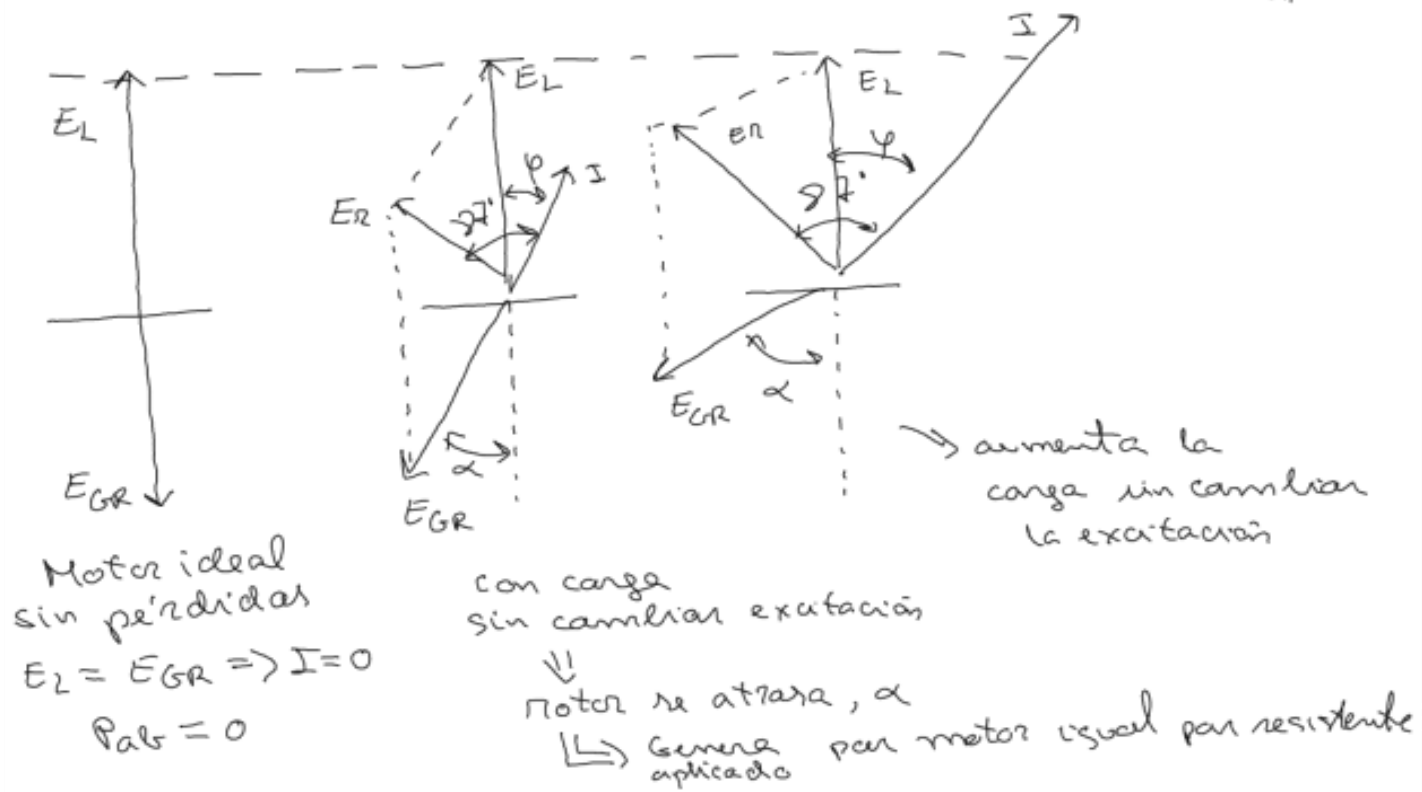 E_L
E_GR
Motor ideal
sin pérdidas
E_L = E_GR => I=0
Pab = 0
E_L
φ
I
E_R
87°
α
E_GR
con carga
sin cambiar excitación
⇓
rotor se atrasa, α
↳ Genera par motor igual par resistente
aplicado
I
E_L
E_R
φ
87°
E_GR
α
→ aumenta la
carga sin cambiar
la excitación